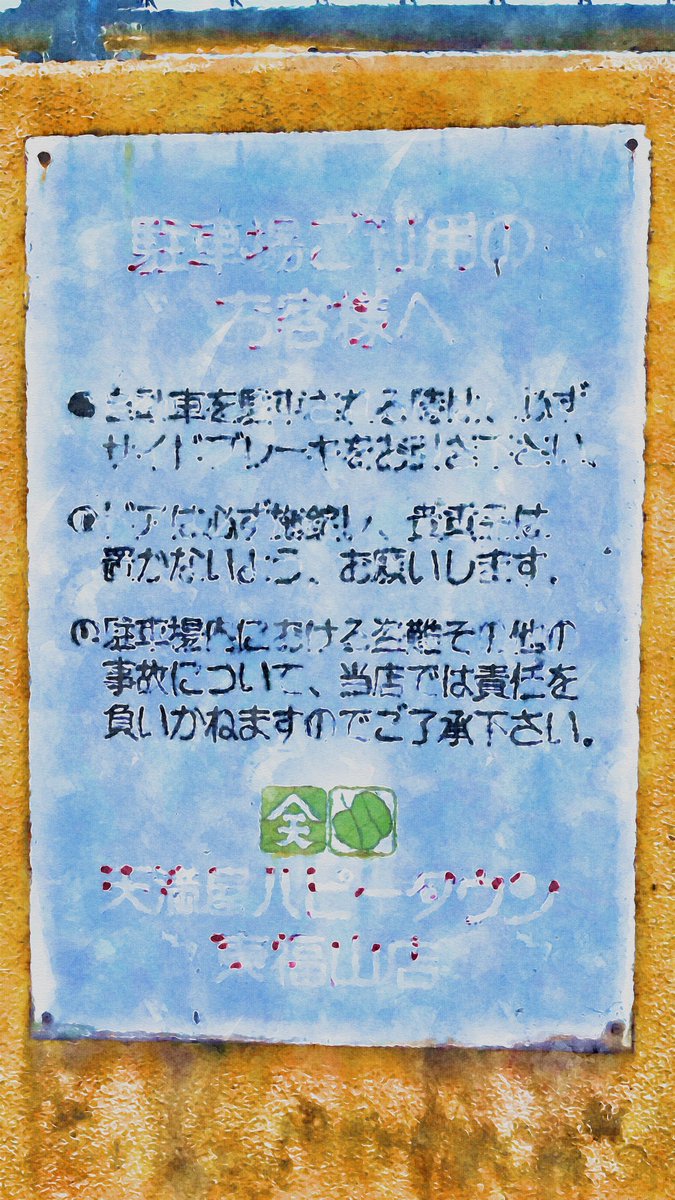 駐車場ご利用の
お客様へ
●自動車を駐車される際は、必ず
サイドブレーキをお引き下さい。
●ドアは必ず施錠し、貴重品は
置かないよう、お願いします。
●駐車場内における盗難その他の
事故について、当店では責任を
負いかねますのでご了承下さい。
天満屋ハピータウン
東福山店